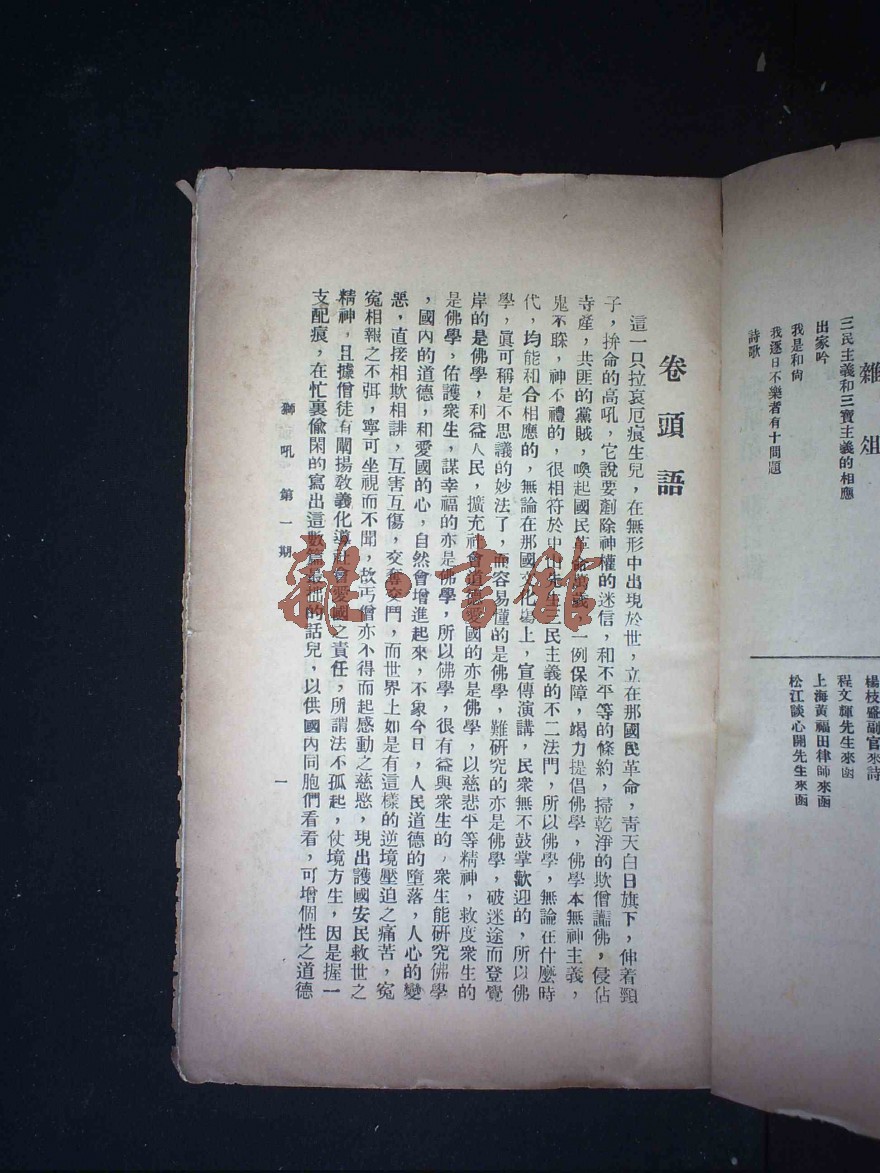 雜俎
三民主義和三寶主義的相應
出家吟
我是和尙
我逐日不樂者有十問題
詩歌
楊枝盛副官來詩
程文輝先生來函
上海黃福田律師來函
松江談心開先生來函
卷頭語
這一只拉哀厄痕生兒，在無形中出現於世，立在那國民革命，靑天白日旗下，伸着頸
子，拚命的高吼，它說要剷除神權的迷信，和不平等的條約，掃乾淨的欺僧謗佛，侵佔
寺產，共匪的黨賊，喚起國民革命，一例保障，竭力提倡佛學，佛學本無神主義，
鬼不睬，神不禮的，很相符於中山先生三民主義的不二法門，所以佛學，無論在什麼時
代，均能和合相應的，無論在那國文化塲上，宣傳演講，民衆無不鼓掌歡迎的，所以佛
學，眞可稱是不思議的妙法了，而容易懂的是佛學，難研究的亦是佛學，破迷途而登覺
岸的是佛學，利益人民，擴充社會道德愛國的亦是佛學，以慈悲平等精神，救度衆生的
是佛學，佑護衆生，謀幸福的亦是佛學，所以佛學，很有益與衆生的，衆生能研究佛學
，國內的道德，和愛國的心，自然會增進起來，不象今日，人民道德的墮落，人心的變
惡，直接相欺相誹，互害互傷，交奪交鬥，而世界上如是有這樣的逆境壓迫之痛苦，寃
寃相報之不弭，寧可坐視而不聞，故丐僧亦不得而起感動之慈愍，現出護國安民救世之
精神，且據僧徒有闡揚敎義化導社會愛國之責任，所謂法不孤起，仗境方生，因是握一
支配痕，在忙裏偸閑的寫出這數篇最拙的話兒，以供國內同胞們看看，可增個性之道德
獅吼 第一期
一
龍·書館